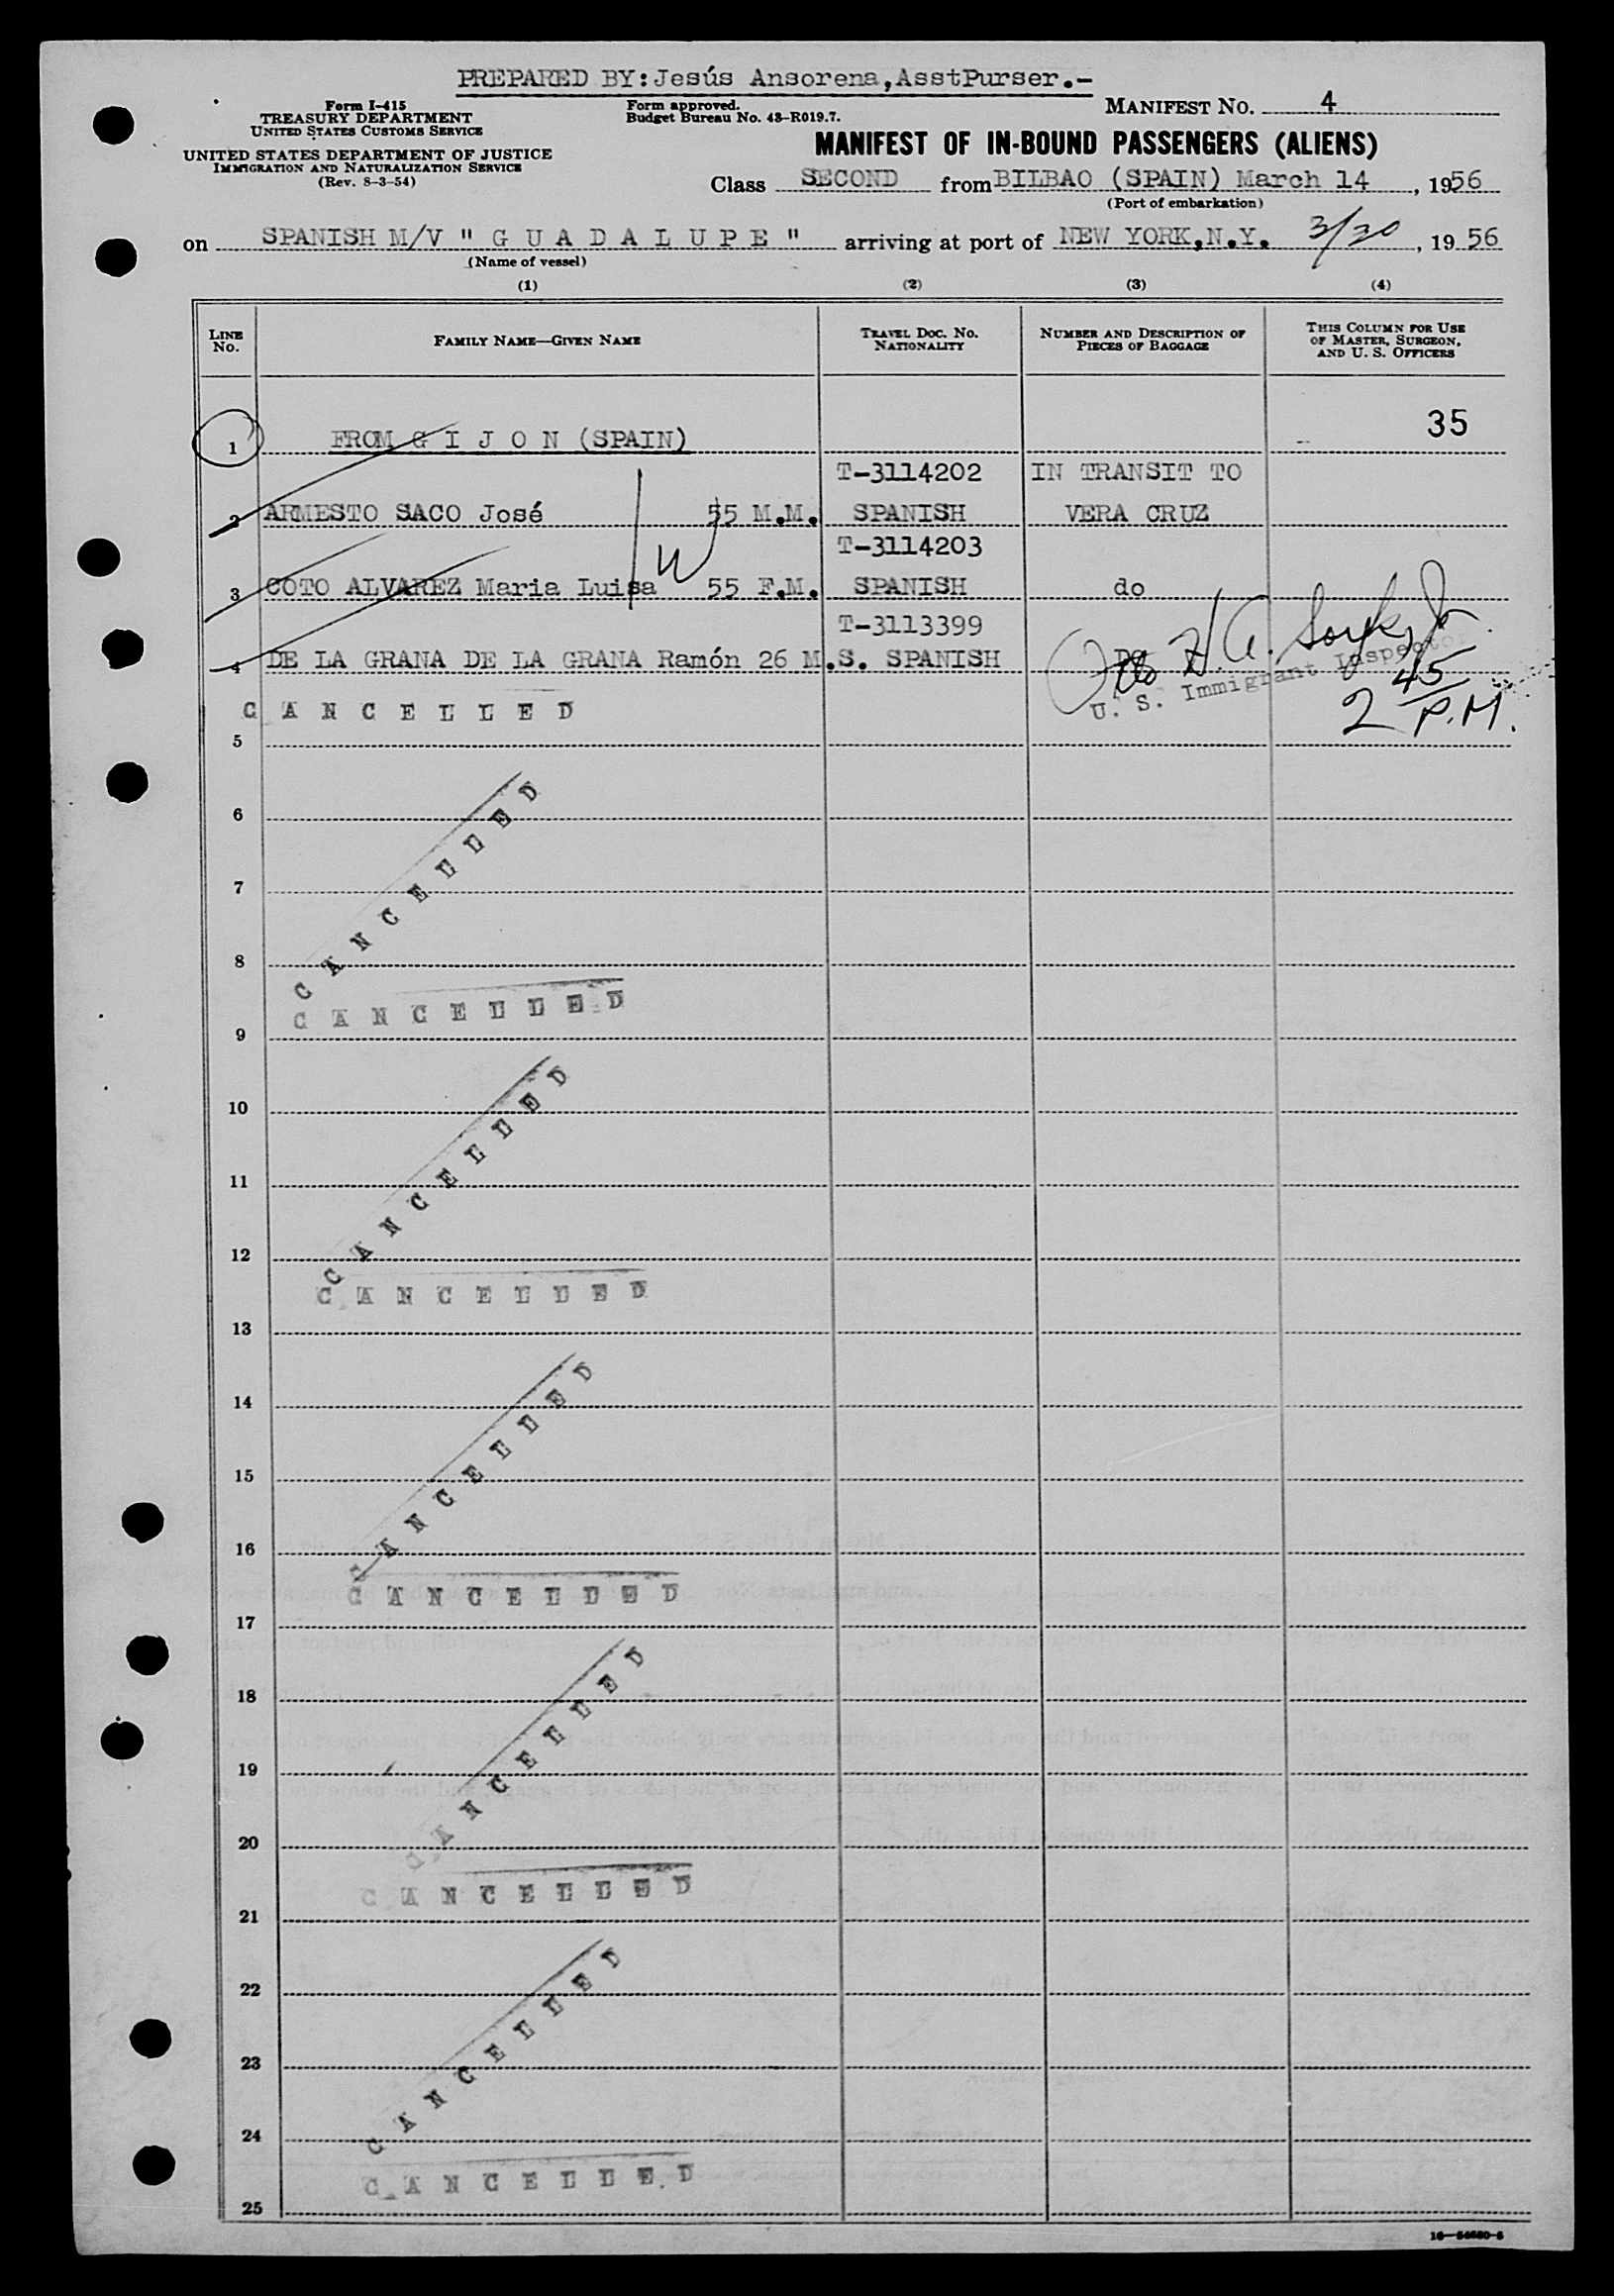 PREPARED BY:Jesús Ansorena,AsstPurser.-
Form I-415
TREASURY DEPARTMENT
UNITED STATES CUSTOMS SERVICE
UNITED STATES DEPARTMENT OF JUSTICE
IMMIGRATION AND NATURALIZATION SERVICE
(Rev. 8-3-54)
Form approved.
Budget Bureau No. 43-R019.7.
MANIFEST NO. 4
MANIFEST OF IN-BOUND PASSENGERS (ALIENS)
Class SECOND from BILBAO (SPAIN) March 14, 1956
(Port of embarkation)
on SPANISH M/V " G U A D A L U P E " arriving at port of NEW YORK,N.Y. 3/30, 19 56
(Name of vessel)
(1) (2) (3) (4)
LINE NO. FAMILY NAME—GIVEN NAME TRAVEL DOC. NO. NATIONALITY NUMBER AND DESCRIPTION OF PIECES OF BAGGAGE THIS COLUMN FOR USE OF MASTER, SURGEON, AND U. S. OFFICERS
35
1 FROM G I J O N (SPAIN)
T-3114202 IN TRANSIT TO
2 ARMESTO SACO José 55 M.M. SPANISH VERA CRUZ
T-3114203
3 COTO ALVAREZ Maria Luisa 55 F.M. SPANISH do
W
T-3113399
4 DE LA GRANA DE LA GRANA Ramón 26 M.S. SPANISH Do
H.A.
U. S. Immigrant Inspector
2 45 P.M.
C A N C E L L E D
5
6
C A N C E L L E D
7
8
C A N C E L L E D
9
10
C A N C E L L E D
11
12
C A N C E L L E D
13
14
C A N C E L L E D
15
16
C A N C E L L E D
17
18
C A N C E L L E D
19
20
C A N C E L L E D
21
22
C A N C E L L E D
23
24
C A N C E L L E D
25